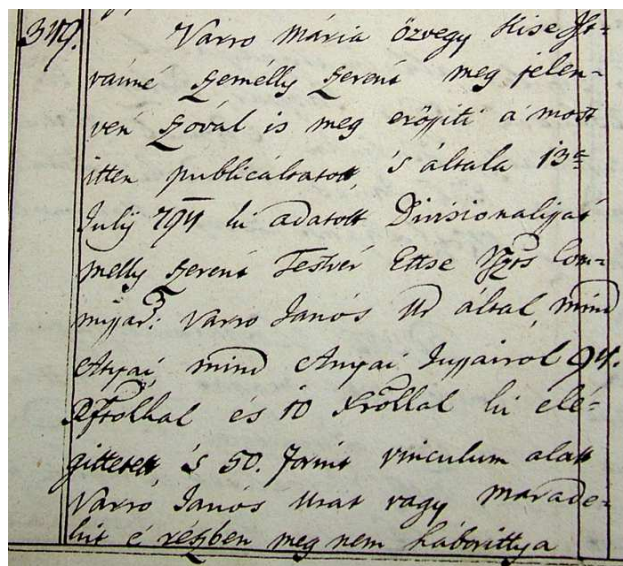 349. Varro Mária özvegy Kise Ist-
vánné személly szerént meg jelen-
vén szóval is meg erőssiti a most
itten publicáltatott 's általa 13a
Julij 794 ki adatott Divisionalissát
melly szerént Testvér Ettse Ns Com-
missar: Varro János Ur által mind
Atyai mind Anyai Jussairól 94.
Rftokkal és 10 Xrokkal ki elé-
gittetett 's 50. forint vinculum alatt
Varró János Urat vagy maradé-
kit e' részben meg nem háborittya